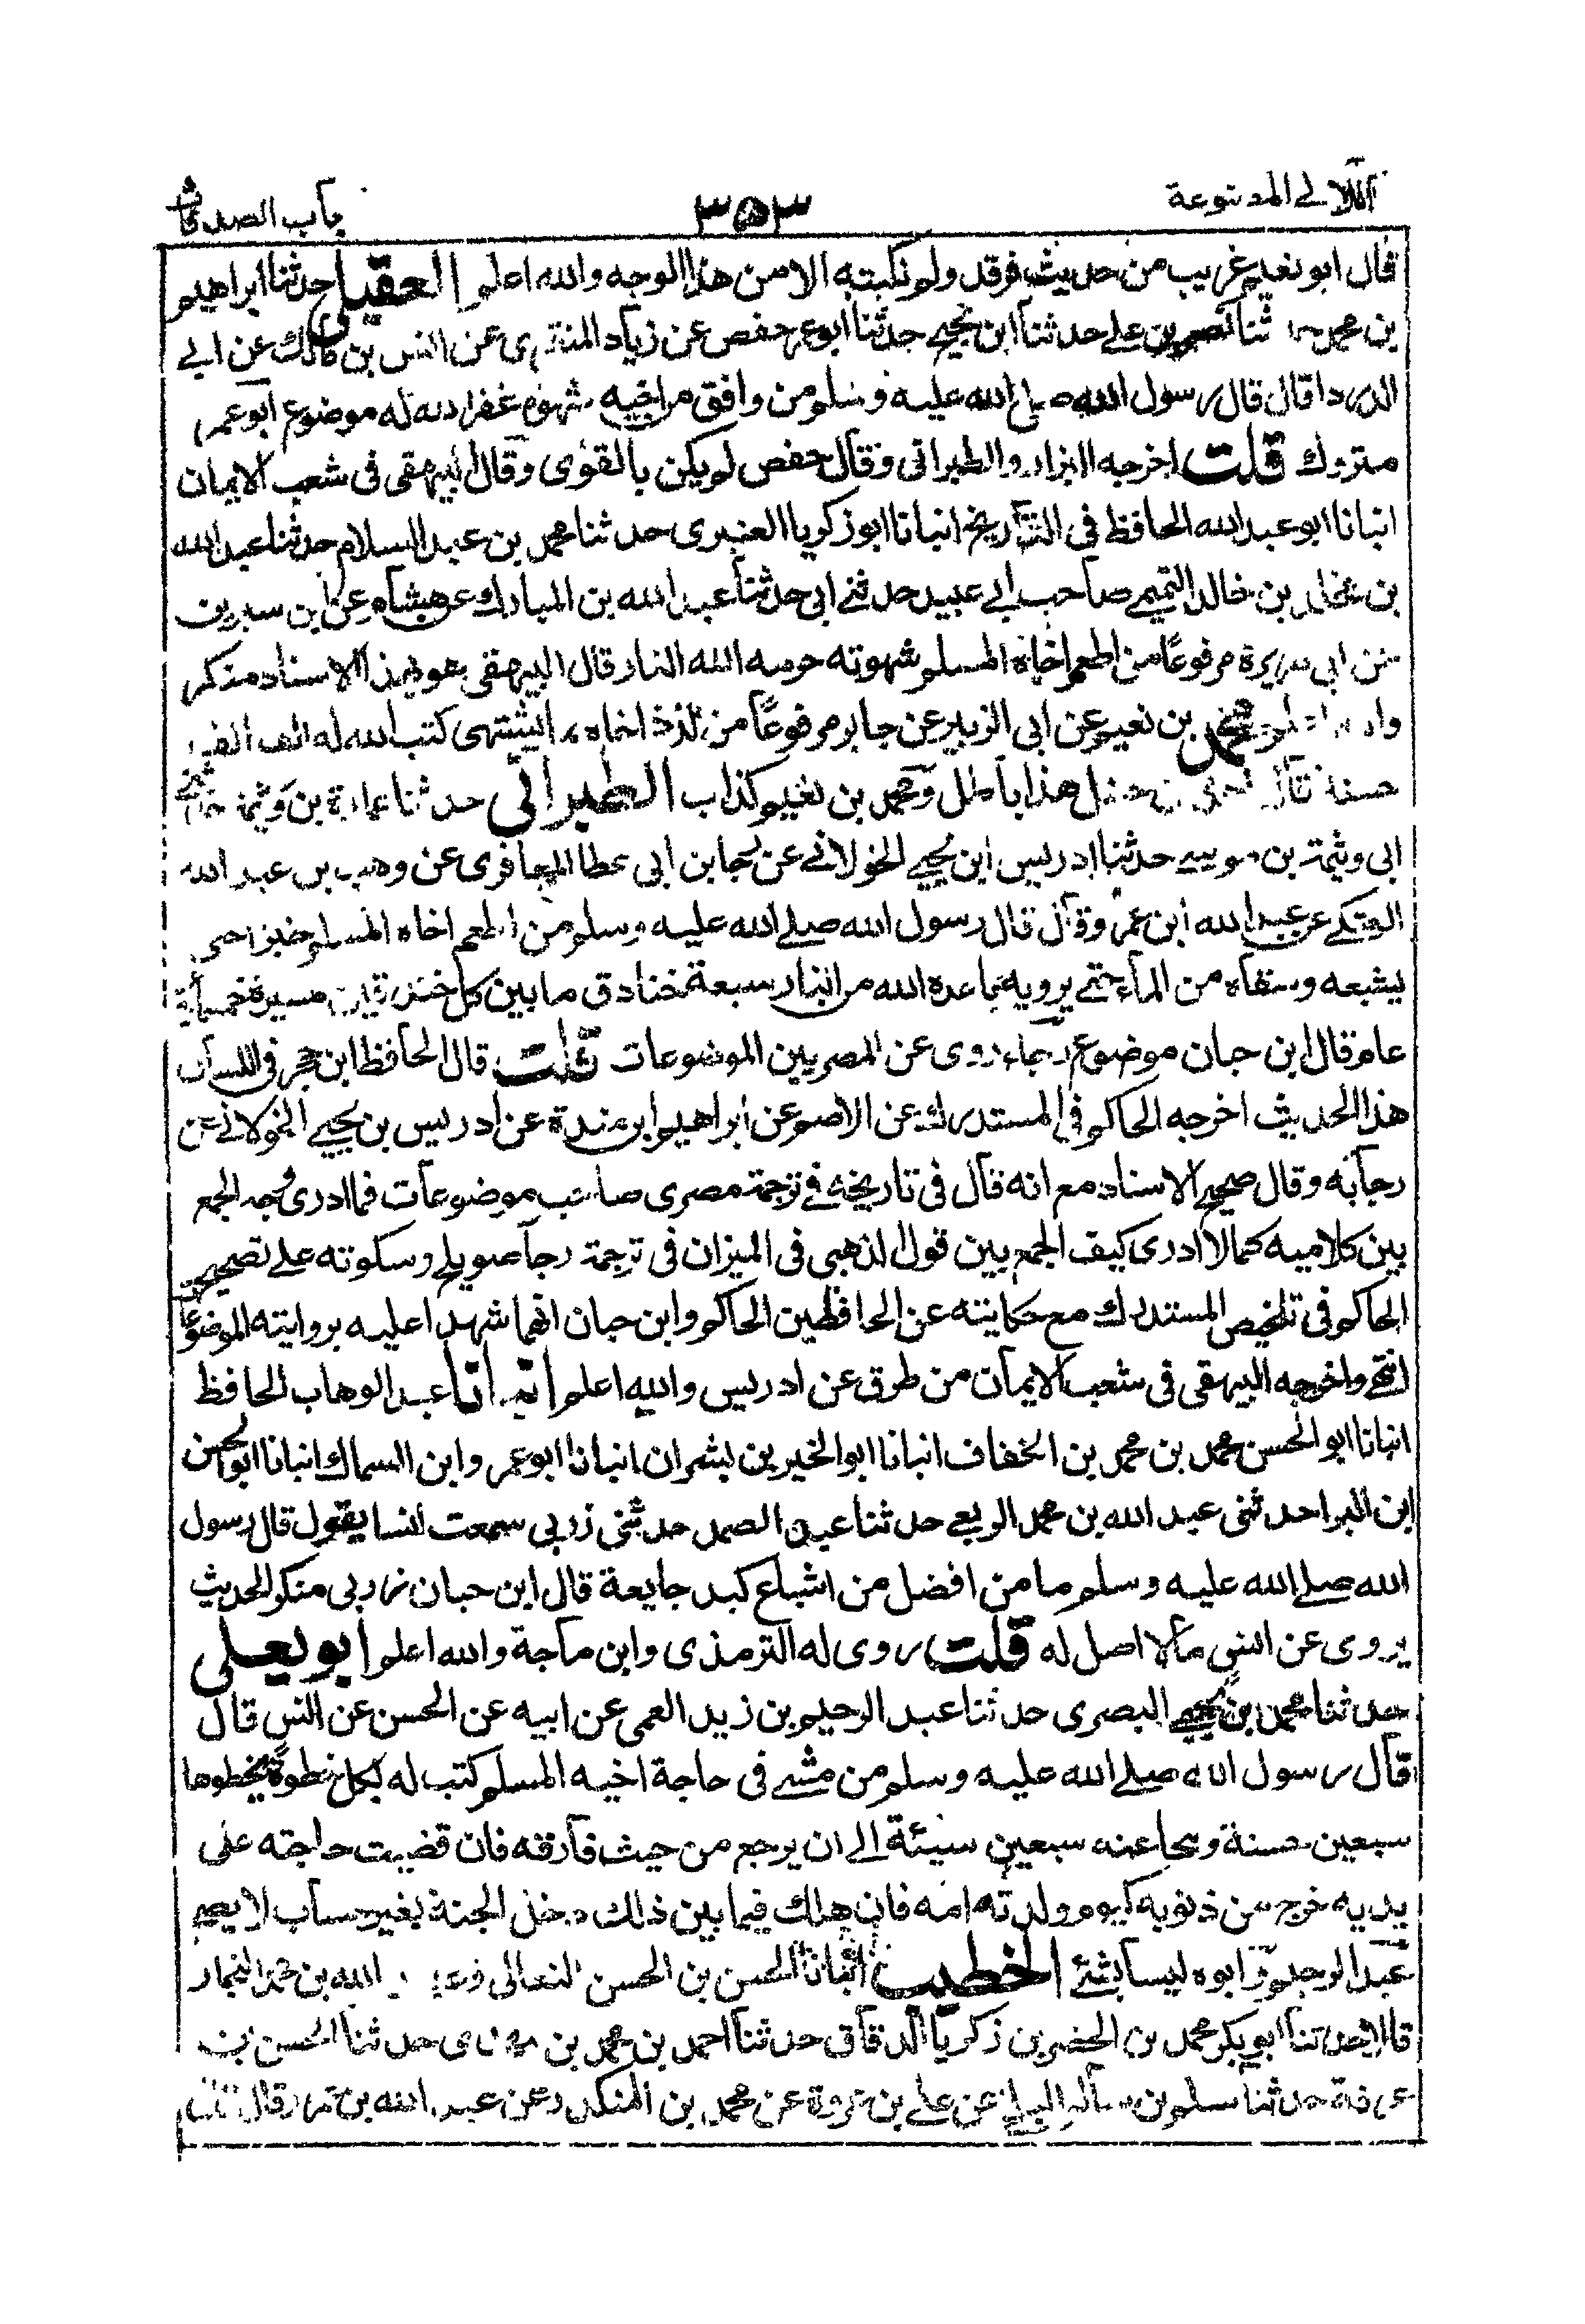 اللآلى المصنوعة ٣٥٣ باب الصدقات
قال ابو نعيم غريب من حديث فرقد ولم نكتبه الا من هذا الوجه والله اعلم العقيلى حدثنا ابراهيم
بن محمد ثنا نصر بن على حدثنا ابن نجيح حدثنا ابو عمر حفص عن زياد عن انس بن مالك عن ابى
الدرداء قال قال رسول الله صلى الله عليه وسلم من وافق من اخيه شهوة غفر الله له موضوع ابو عمر
متروك قلت اخرجه البزار والطبرانى وقال حفص لم يكن بالقوى وقال البيهقى فى شعب الايمان
انبانا ابو عبد الله الحافظ فى التاريخ انبانا ابو زكريا العنبرى حدثنا محمد بن عبد السلام حدثنا عبد الله
بن مخلد بن خالد التميمى صاحب ابى عبيد حدثنى ابى حدثنا عبد الله بن المبارك عن هشام عن ابن سيرين
عن ابى هريرة مرفوعًا من اطعم اخاه المسلم شهوته حرمه الله النار قال البيهقى هو بهذا الاسناد منكر
محمد بن نعيم عن ابى الزبير عن جابر مرفوعًا من لذذ اخاه بما يشتهى كتب الله له الف الف
حسنة قال احمد بن حنبل هذا باطل ومحمد بن نعيم كذاب الطبرانى حدثنا عمارة بن وثيمة حدثنى
ابى وثيمة بن موسى حدثنا ادريس ابن يحيى الخولانى عن رجا بن ابى عطا المعافرى عن وهب بن عبد الله
العتكى عن عبد الله ابن عمر وقال قال رسول الله صلى الله عليه وسلم من اطعم اخاه المسلم خبزا حتى
يشبعه وسقاه من الماء حتى يرويه باعده الله من النار سبعة خنادق ما بين كل خندقين مسيرة خمسمائة
عام قال ابن حبان موضوع رجاء روى عن المصريين الموضوعات قلت قال الحافظ ابن حجر فى اللسان
هذا الحديث اخرجه الحاكم فى المستدرك عن الاصم عن ابراهيم ابن مندة عن ادريس بن يحيى الخولانى عن
رجا به وقال صحيح الاسناد مع انه قال فى تاريخه فى ترجمة مصرى صاحب موضوعات فما ادرى وجه الجمع
بين كلاميه كما لا ادرى كيف الجمع بين قول الذهبى فى الميزان فى ترجمة رجا صويلح وسكوته على تصحيح
الحاكم فى تلخيص المستدرك مع حكايته عن الحافظين الحاكم وابن حبان انهما شهدا عليه بروايته الموضوعات
انتهى واخرجه البيهقى فى شعب الايمان من طرق عن ادريس والله اعلم انبانا عبد الوهاب الحافظ
انبانا ابو الحسن محمد بن محمد بن الخفاف انبانا ابو الخير بن بشران انبانا ابو عمر وابن السماك انبانا ابو الحسن
ابن البرا حدثنى عبد الله بن محمد الربعى حدثنا عبد الصمد حدثنى زربى سمعت انسا يقول قال رسول
الله صلى الله عليه وسلم ما من افضل من اشباع كبد جايعة قال ابن حبان زربى منكر الحديث
يروى عن انس مالا اصل له قلت روى له الترمذى وابن ماجة والله اعلم ابو يعلى
حدثنا محمد بن يحيى البصرى حدثنا عبد الرحيم بن زيد العمى عن ابيه عن الحسن عن انس قال
قال رسول الله صلى الله عليه وسلم من مشى فى حاجة اخيه المسلم كتب له بكل خطوة يخطوها
سبعين حسنة ومحا عنه سبعين سيئة الى ان يرجع من حيث فارقه فان قضيت حاجته على
يديه خرج من ذنوبه كيوم ولدته امه فان هلك فيما بين ذلك دخل الجنة بغير حساب لا يصح
عبد الرحيم وابوه ليسا بشئ الخطيب انبانا الحسن بن الحسن النعالى الله بن النجار
قالا حدثنا ابو بكر محمد بن الخضر بن زكريا الدقاق حدثنا احمد بن محمد بن حدثنا الحسن بن
عرفة حدثنا سلم بن سالم البلخى عن على بن عروة عن محمد بن المنكدر عن عبد الله بن قال قال